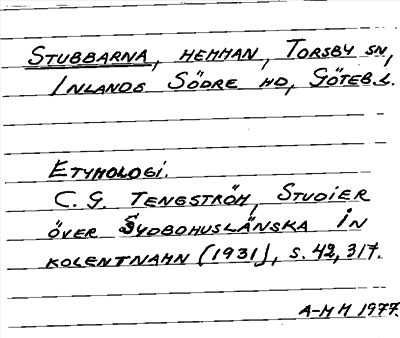 STUBBARNA, HEMMAN, TORSBY SN,
INLANDS SÖDRE HD, GÖTEB.L.
ETYMOLOGI.
C. G. TENGSTRÖM, STUDIER
ÖVER SYDBOHUSLÄNSKA IN
KOLENTNAMN (1931), S. 42, 317.
A-M H 1977.